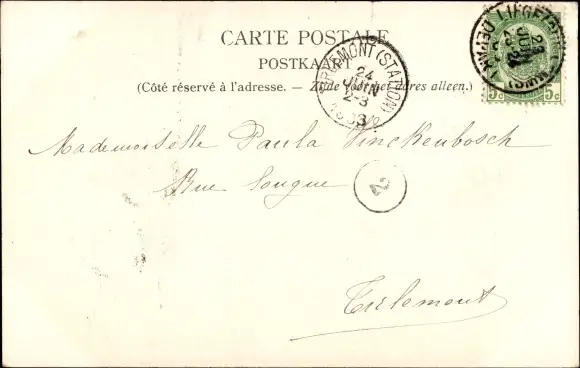 CARTE POSTALE
POSTKAART
(Côté réservé à l'adresse. — Zijde voor het adres alleen.)
TIRLEMONT (STATION)
24
JUIN
2-3
LIÉGE
(DÉPART)
JUIN
5c 5c
Mademoiselle Paula Vinckenbosch
Rue longue
2
Tirlemont